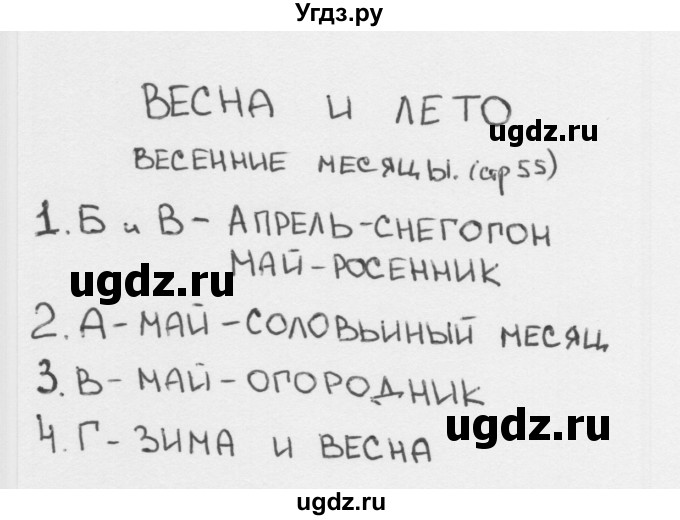 Угдз.ру
ВЕСНА И ЛЕТО
ugdz.ru
ВЕСЕННИЕ МЕСЯЦЫ. (стр 55)
1. Б и В - АПРЕЛЬ-СНЕГОГОН
МАЙ-РОСЕННИК
ugdz.ru
2. А - МАЙ - СОЛОВЬИНЫЙ МЕСЯЦ
3. В - МАЙ - ОГОРОДНИК
ugdz.ru
4. Г - ЗИМА И ВЕСНА
ugdz.ru